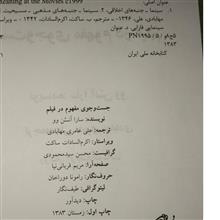 عنوان اصلی: Meaning at the Movies c1999
۱. سینما - جنبه‌های اخلاقی. ۲. سینما - جنبه‌های مذهبی - مسیحیت.
مهابادی، علی، ۱۳۴۶- ، مترجم. ب. ساکت، اکرم‌السادات، ۱۳۴۷-
سینمایی فارابی. د. عنوان
PN۱۹۹۵/۵/
۱۳۸۳
کتابخانه ملی ایران
جست‌وجوی مفهوم در فیلم
نویسنده: سارا آنسن وو
ترجمه: علی عامری مهابادی
اکرم‌السادات ساکت
گرافیست: محسن سیدمحمودی
صفحه‌آرا: مریم قربانی‌نیا
حروف‌نگار: رامونا دوراخان
لیتوگرافی: طیف‌نگار
چاپ: دیدآور
چاپ اول: زمستان ۱۳۸۳